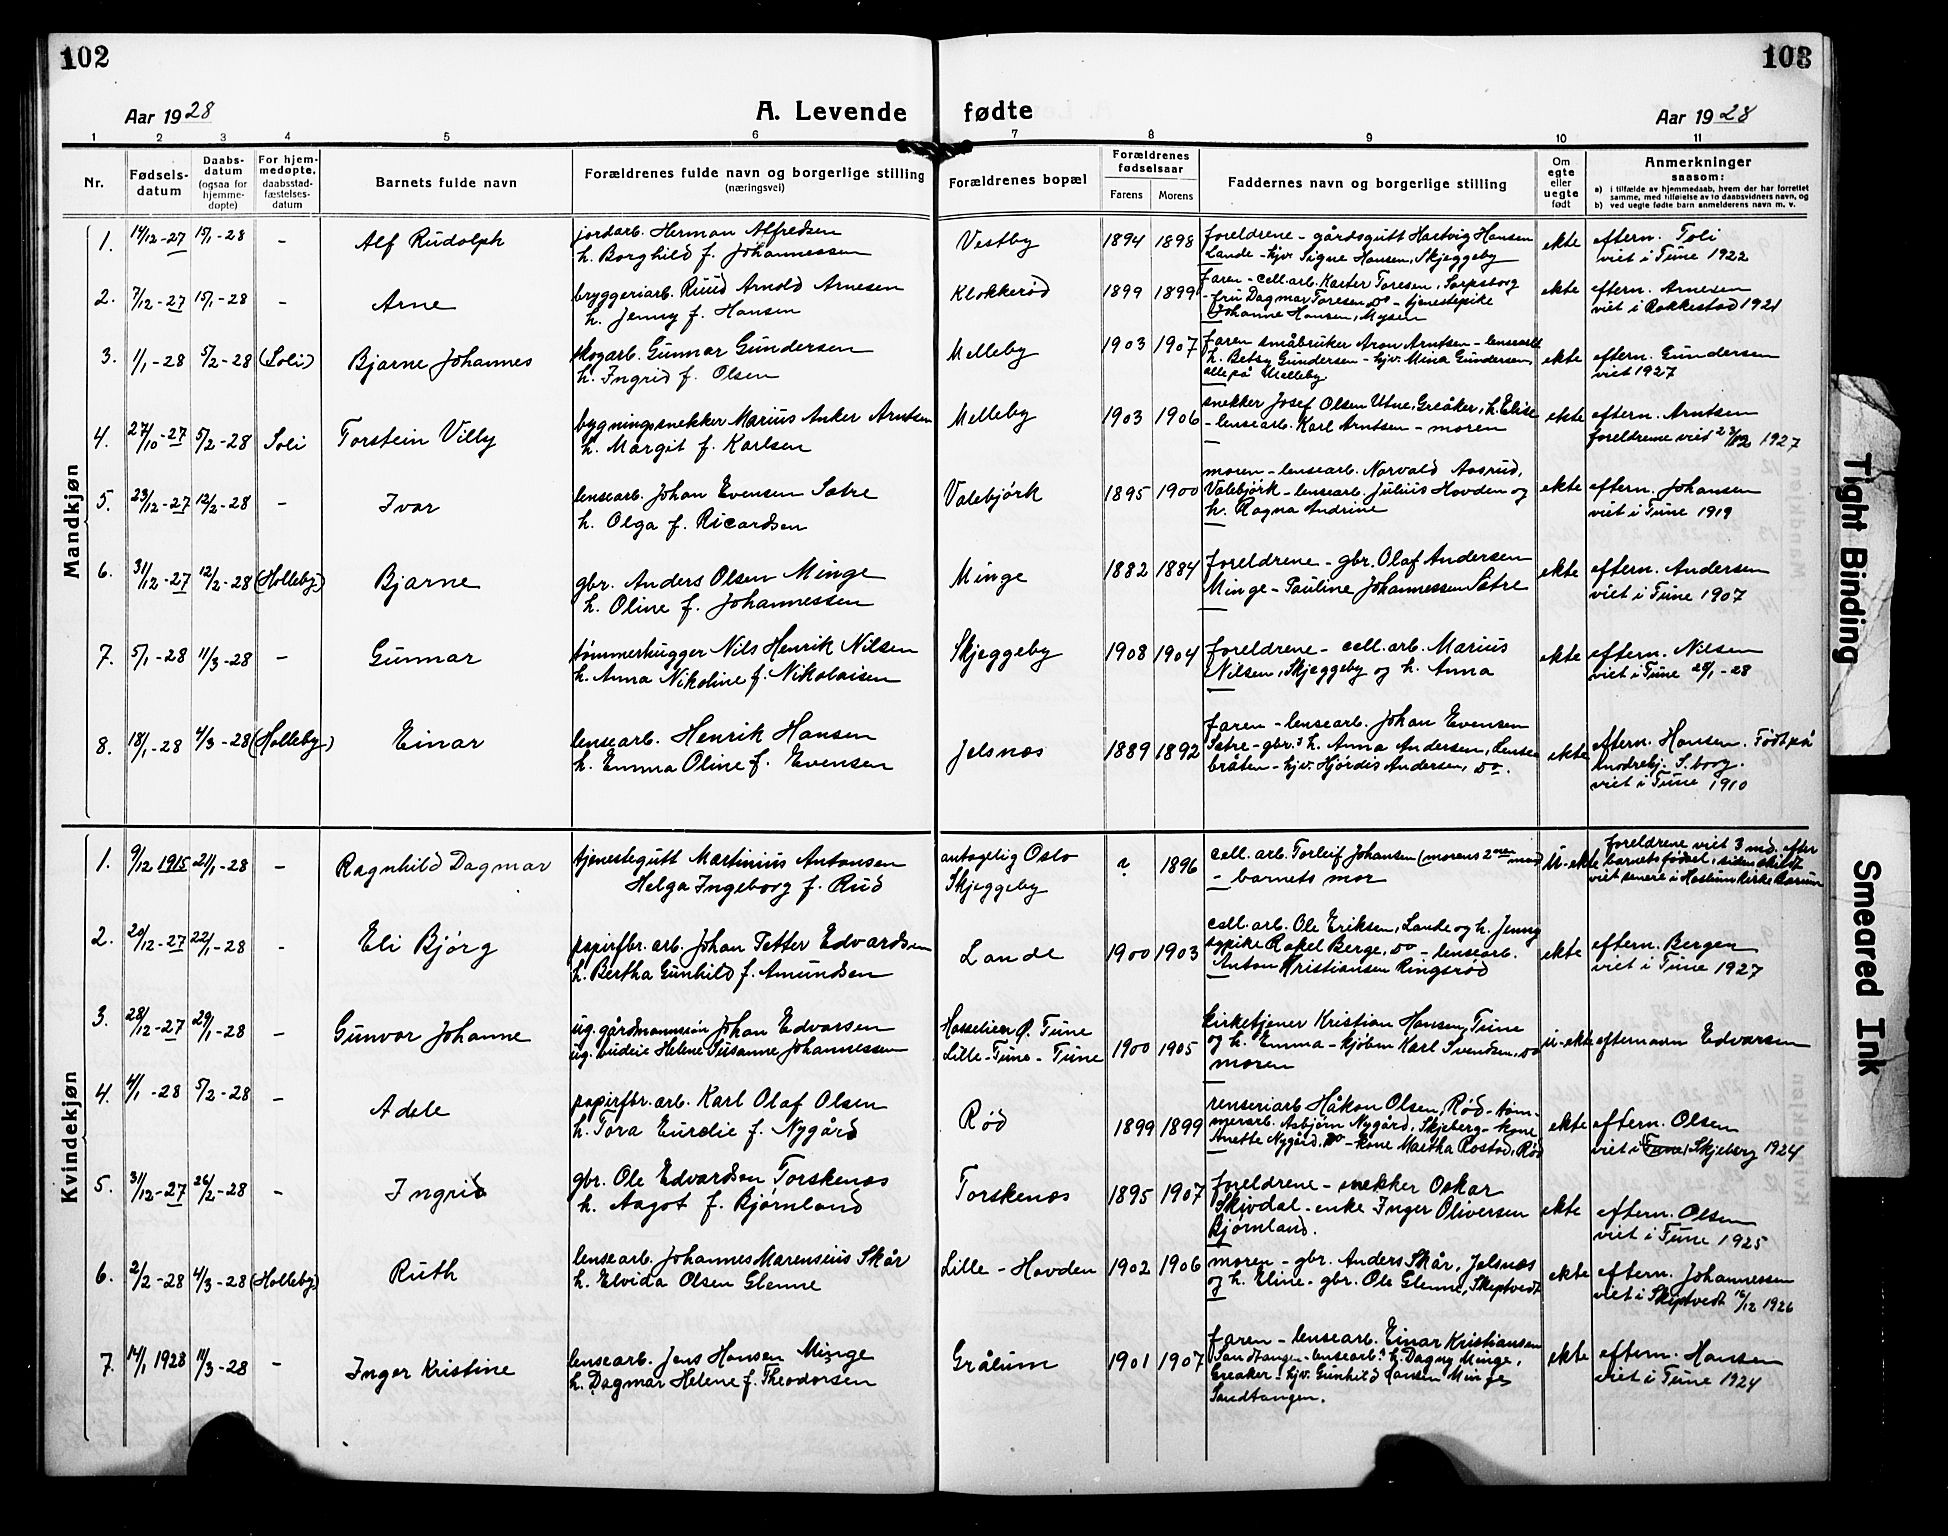 102
103
Aar 1928
A. Levende fødte
Aar 1928
1 2 3 4 5 6 7 8 9 10 11
Nr.
Fødsels-
datum
Daabs-
datum
(ogsaa for
hjemme-
døpte)
For hjem-
medøpte.
daabsstad-
fæstelses-
datum
Barnets fulde navn
Forældrenes fulde navn og borgerlige stilling
(næringsvei)
Forældrenes bopæl
Forældrenes
fødselsaar
Farens Morens
Faddernes navn og borgerlige stilling
Om
egte
eller
uegte
født
Anmerkninger
saasom:
a) i tilfælde av hjemmedaab, hvem der har forrettet
samme, med tilføielse av to daabsvidners navn, og
b) ved uegte fødte barn anmelderens navn m. v.
Mandkjøn
1. 14/12-27 15/1-28 - Alf Rudolph
jordarb. Herman Alfredsen
h. Borghild f. Johannessen
Vestby 1894 1898
foreldrene - gårdsgutt Hartvig Hansen
Lande - hjv. Signe Hansen, Skjeggeby
ekte
eftern. Toli
viet i Tune 1922
2. 7/12-27 15/1-28 - Arne
bryggeriarb. Ruud Arnold Arnesen
h. Jenny f. Hansen
Klokkerød 1899 1899
faren - cell.arb. Kaster Toresen, Sarpsborg
- fru Dagmar Toresen, do - tjenestepike
Johanne Hansen, Mysen
ekte
eftern. Arnesen
viet i Rakkestad 1921
3. 1/1-28 5/2-28 (Soli) Bjarne Johannes
skogarb. Gunnar Gundersen
h. Ingrid f. Olsen
Melleby 1903 1907
faren småbruker Aron Arntsen - lensearb
h. Betsy Gundersen - hjv. Mina Gundersen,
alle på Melleby
ekte
eftern. Gundersen
viet 1927
4. 27/10-27 5/2-28 Soli Torstein Villy
bygningssnekker Marius Anker Arntsen
h. Margit f. Karlsen
Melleby 1903 1906
snekker Josef Olsen Utne, Greåker, h. Elise
- lensearb. Karl Arntsen - moren
ekte
eftern. Arntsen
foreldrene viet 1927
5. 23/12-27 12/2-28 - Ivar
lensearb. Johan Evensen Satre
h. Olga f. Ricardsen
Valebjörk 1895 1900
moren - lensearb. Norvald Aasrud,
Valebjörk - lensearb. Julius Hovden og
h. Ragna Andrine
ekte
eftern. Johansen
viet i Tune 1919
6. 31/12-27 12/2-28 (Holleby) Bjarne
gbr. Anders Olsen Minge
h. Oline f. Johannessen
Minge 1882 1884
foreldrene - gbr. Olaf Andersen
Minge - Pauline Johannessen Satre
ekte
eftern. Andersen
viet i Tune 1907
7. 5/1-28 11/3-28 - Gunnar
tømmerhugger Nils Henrik Nilsen
h. Anna Nikoline f. Nikolaisen
Skjeggeby 1908 1904
foreldrene - cell.arb. Marius
Nilsen, Skjeggeby og h. Anna
ekte
eftern. Nilsen
viet i Tune 28/1-28
8. 18/1-28 4/3-28 (Holleby) Einar
lensearb. Henrik Hansen
h. Emma Oline f. Evensen
Jelsnæs 1889 1892
faren - lensearb. Johan Evensen
Satre - gbr.s h. Anna Andersen, Lense
bråten - hjv. Hjördis Andersen, do.
ekte
eftern. Hansen. Født på
S.borg.
viet i Tune 1910
Kvindekjøn
1. 9/12 1915 21/1-28 - Ragnhild Dagmar
tjenestegutt Martinius Antonsen
Helga Ingeborg f. Rud
antagelig Oslo
Skjeggeby
? 1896
cell. arb. Torleif Johansen (morens 2nen mand
- barnets mor
u-ekte
foreldrene viet 3 md. efter
barnets fødsel, siden skildt
viet senere i Haslum kirke Bærum
2. 20/12-27 22/1-28 - Eli Bjørg
papirfbr. arb. Johan Petter Edvardsen
h. Bertha Gunhild f. Amundsen
Lande 1900 1903
cell. arb. Ole Eriksen, Lande og h. Jenny
sypike Rakel Berge, do - lensearb.
Anton Kristiansen Ringsrød
ekte
eftern. Bergen
viet i Tune 1927
3. 28/12-27 29/1-28 - Gunvor Johanne
ug. gårdmannssøn Johan Edvarsen
ug. budeie Helene Susanne Johannessen
Hasselien Ø. Tune
Lille-Tune - Tune
1900 1905
kirketjener Kristian Hansen, Tune
og h. Emma - kjøbm Karl Svendsen, do
moren
u-ekte
efternavn Edvarsen
4. 4/1-28 5/2-28 - Adele
papirfbr. arb. Karl Olaf Olsen
h. Tora Eurdie f. Nygård
Rød 1899 1899
renseriarb Håkon Olsen, Rød - töm-
merarb. Asbjörn Nygård, Skjeberg - kone
Anette Nygård, do - kone Maetha Rostad, Rød
ekte
eftern. Olsen
viet i Tune, Skjeberg 1924
5. 31/12-27 26/2-28 - Ingrid
gbr. Ole Edvardsen Torskenæs
h. Aagot f. Bjørnland
Torskenæs 1895 1907
foreldrene - snekker Oskar
Skivdal - enke Inger Oliversen
Bjørnland.
ekte
eftern. Olsen
viet i Tune 1925
6. 2/2-28 4/3-28 (Holleby) Ruth
lensearb. Johannes Marensius Skår
h. Elvida Olsen Glenne
Lille - Hovden 1902 1906
moren - gbr. Anders Skår, Jelsnæs
og h. Eline - gbr. Ole Glenne, Skiptvedt
ekte
eftern. Johannessen
viet i Skiptvedt 16/12 1926
7. 14/1 1928 11/3-28 - Inger Kristine
lensearb. Jens Hansen Minge
h. Dagmar Helene f. Theodorsen
Grålum 1901 1907
faren - lensearb. Einar Kristiansen
Sandtangen - lensearb.s h. Dagny Minge,
Greaker - hjv. Gunhild Hansen Minge
Sandtangen.
ekte
eftern. Hansen
viet i Tune 1924
Tight Binding
Smeared Ink